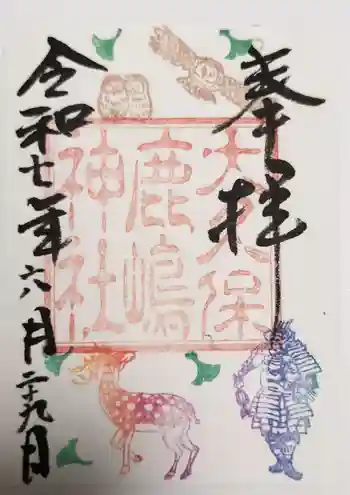 奉拝
大久保
鹿嶋
神社
令和七年六月二十九日